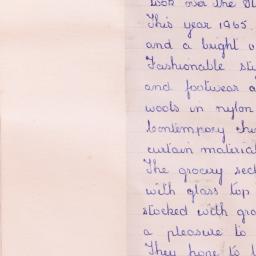 took over the
This year 1965
and a bright
Fashionable
and footwear
wools in nylon
Contempory
curtain material
The grocery
with glass top
stocked with
a pleasure to
They hope to